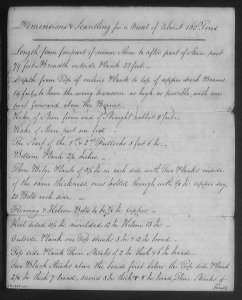 Dimensions & Scantling for a Boat of About 150 Tons
Length from forepart of main Stem to after part of stern post
79 feet Breadth outside Plank 22 feet
Depth from Top of ceiling Plank to top of upper deck Beams
to have the wing transom as high as possible with one
port forward above the
Rake of Stem from end of Straight rabbet 8 feet
Rake of Stern post one foot
The Scarf of the 1st & 2nd Futtocks 3 feet 6 in
Bottom Plank 2½ Inches
Three Bilge Planks of 3½ in on each side with Two Planks inside
of the same thickness and bolted through with ⅝ copper dog
20 Bolts each side
Flooring & Kelson Bolts to be ⅞ in copper
Keel sided 10½ moulded 12 Kelson 13 in
Outside Plank one Top streake 3 in & 12 in broad
Top side Plank Three Streaks of 2 in thick & 8 in broad
Two Black Streaks above the bends fixed below the Top side
2½ in thick 7 broad, second 3 in thick & 8 in broad, Three Streaks of
bends